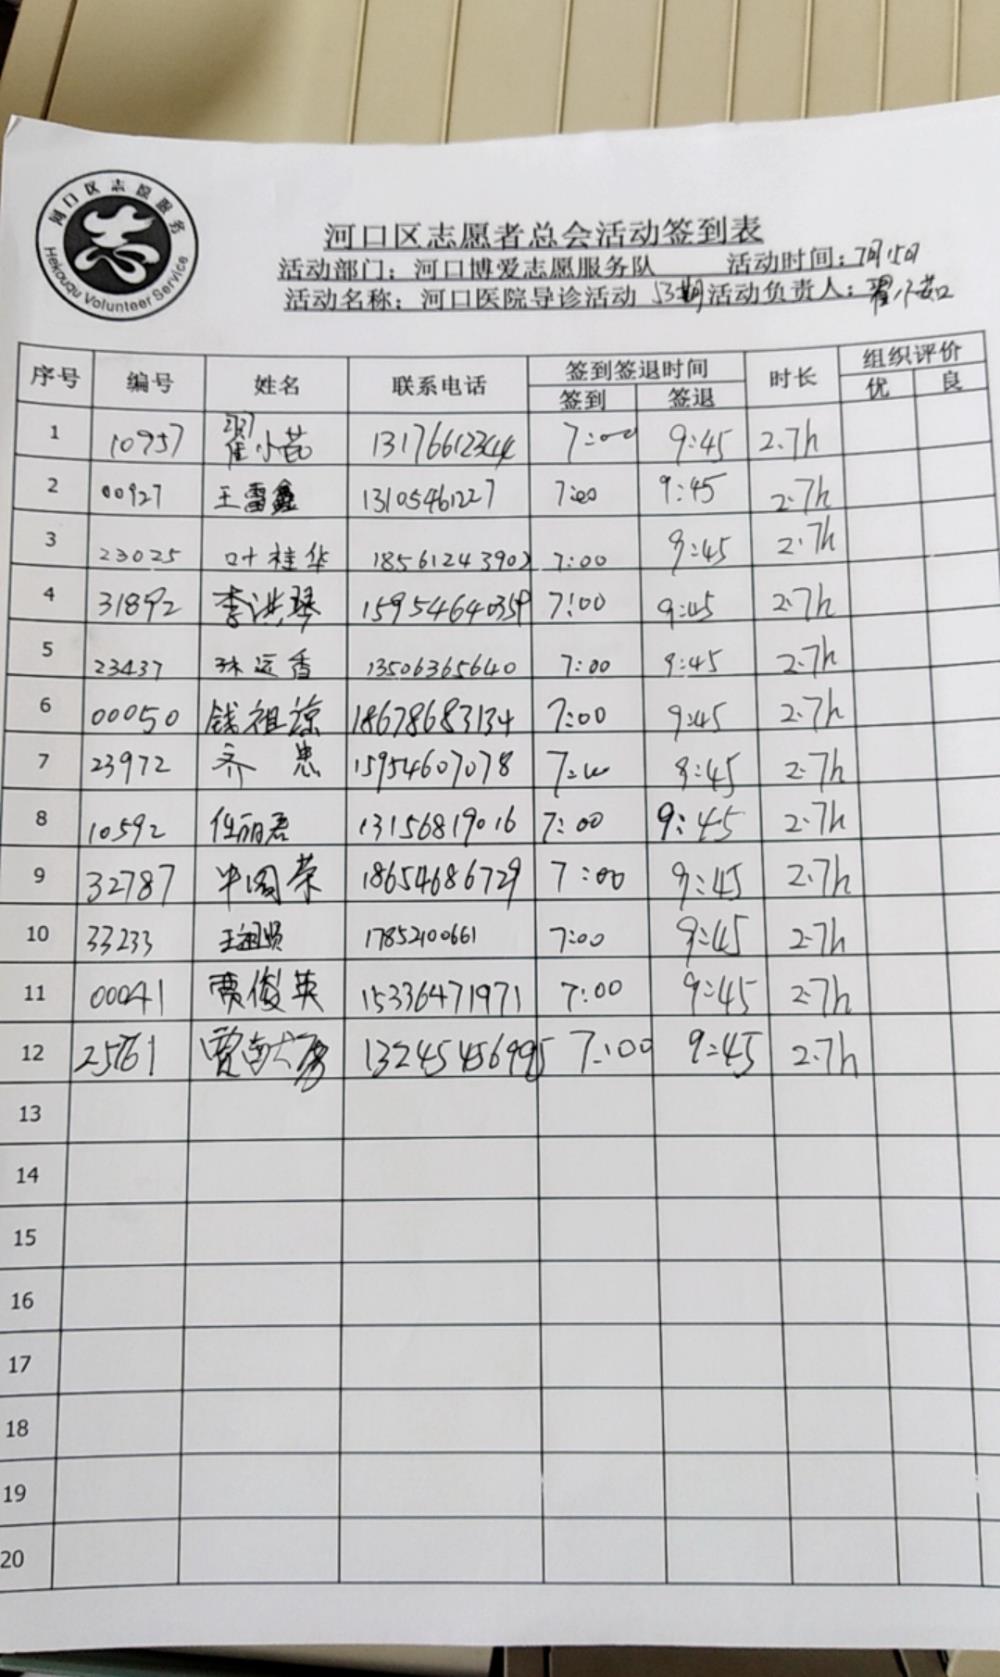 河口区志愿服务
Hekouqu Volunteer Service
志
河口区志愿者总会活动签到表
活动部门：河口博爱志愿服务队 活动时间：7月15日
活动名称：河口医院导诊活动 53期 活动负责人：翟小茹
序号 编号 姓名 联系电话 签到签退时间 时长 组织评价
签到 签退 优 良
1 10957 翟小茹 13176612344 7:00 9:45 2.7h
2 00927 王雷鑫 13105461227 7:00 9:45 2.7h
3 23025 叶桂华 18561243902 7:00 9:45 2.7h
4 31892 李洪琴 15954640359 7:00 9:45 2.7h
5 23437 孙运香 13506365640 7:00 9:45 2.7h
6 00050 钱祖琼 18678683134 7:00 9:45 2.7h
7 23972 齐忠 15954607078 7:00 9:45 2.7h
8 10592 任丽君 13156819016 7:00 9:45 2.7h
9 32787 荣 18654686729 7:00 9:45 2.7h
10 33233 王 17852100661 7:00 9:45 2.7h
11 00041 贾俊英 15336471971 7:00 9:45 2.7h
12 贾 7:00 9:45 2.7h
13
14
15
16
17
18
19
20